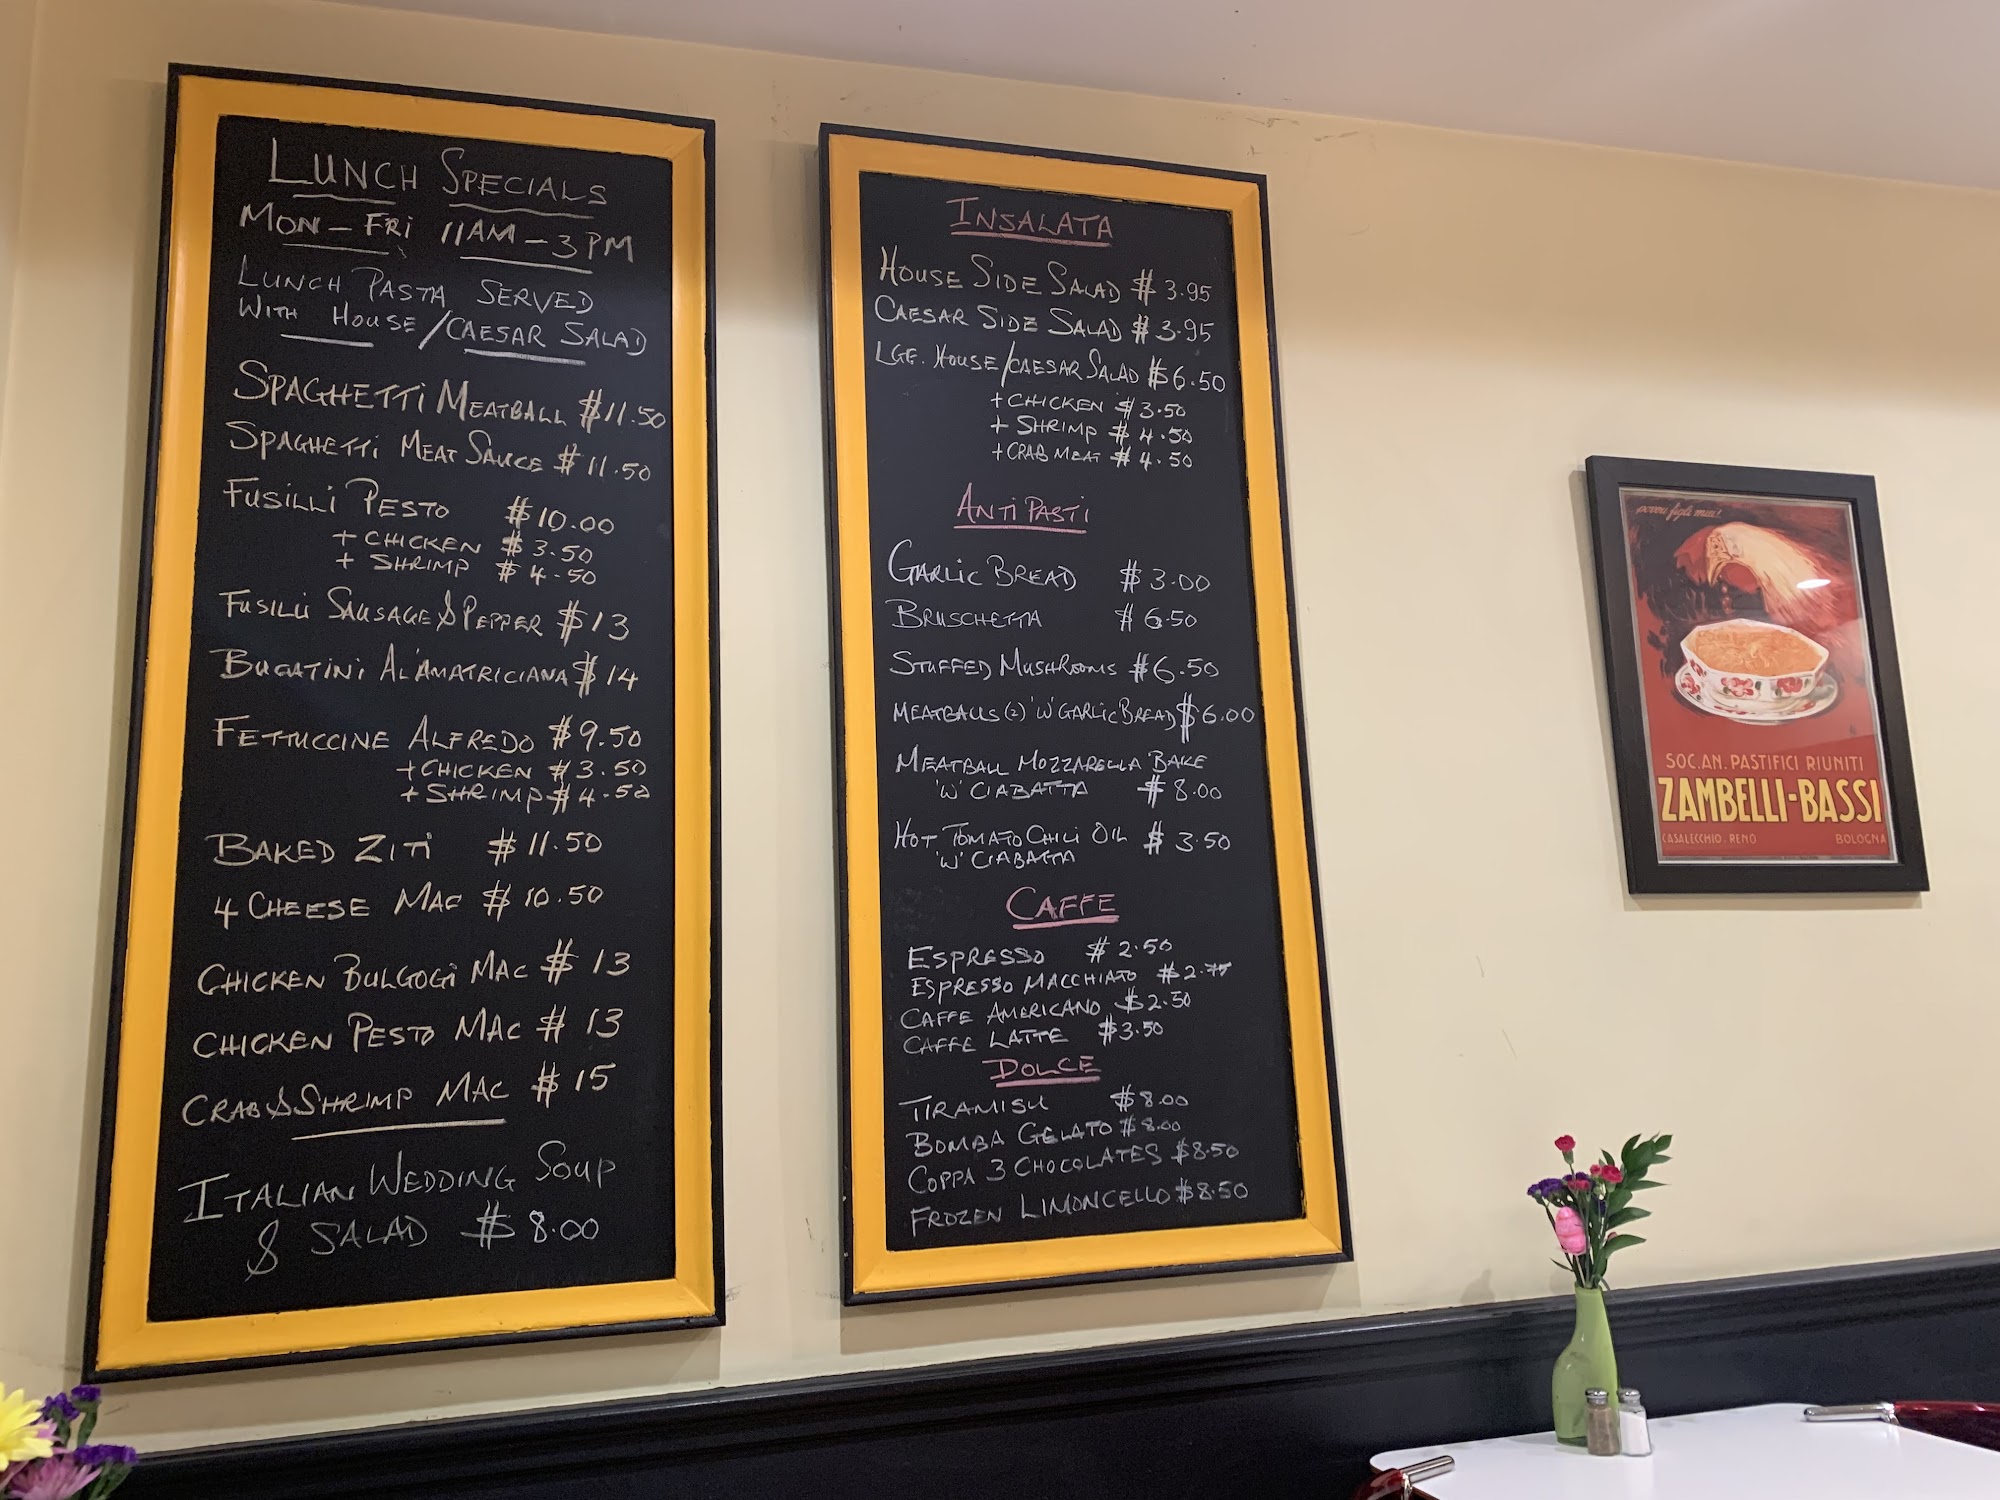 LUNCH SPECIALS
MON - FRI 11AM - 3PM
LUNCH PASTA SERVED
WITH HOUSE/CAESAR SALAD
SPAGHETTI MEATBALL $11.50
SPAGHETTI MEAT SAUCE $11.50
FUSILLI PESTO $10.00
+ CHICKEN $3.50
+ SHRIMP $4.50
FUSILLI SAUSAGE & PEPPER $13
BUCATINI AL'AMATRICIANA $14
FETTUCCINE ALFREDO $9.50
+CHICKEN $3.50
+SHRIMP $4.50
BAKED ZITI $11.50
4 CHEESE MAC $10.50
CHICKEN BULGOGI MAC $13
CHICKEN PESTO MAC $13
CRAB & SHRIMP MAC $15
ITALIAN WEDDING SOUP
& SALAD $8.00
INSALATA
HOUSE SIDE SALAD $3.95
CAESAR SIDE SALAD $3.95
LGE. HOUSE/CAESAR SALAD $6.50
+CHICKEN $3.50
+ SHRIMP $4.50
+CRAB MEAT $4.50
ANTIPASTI
GARLIC BREAD $3.00
BRUSCHETTA $6.50
STUFFED MUSHROOMS $6.50
MEATBALLS (2) 'W' GARLIC BREAD $6.00
MEATBALL MOZZARELLA BAKE
'W' CIABATTA $8.00
HOT TOMATO CHILI OIL $3.50
'W' CIABATTA
CAFFE
ESPRESSO $2.50
ESPRESSO MACCHIATO $2.75
CAFFE AMERICANO $2.50
CAFFE LATTE $3.50
DOLCE
TIRAMISU $8.00
BOMBA GELATO $8.00
COPPA 3 CHOCOLATES $8.50
FROZEN LIMONCELLO $8.50
povera figli miei!
SOC.AN. PASTIFICI RIUNITI
ZAMBELLI-BASSI
CASALECCHIO. RENO BOLOGNA